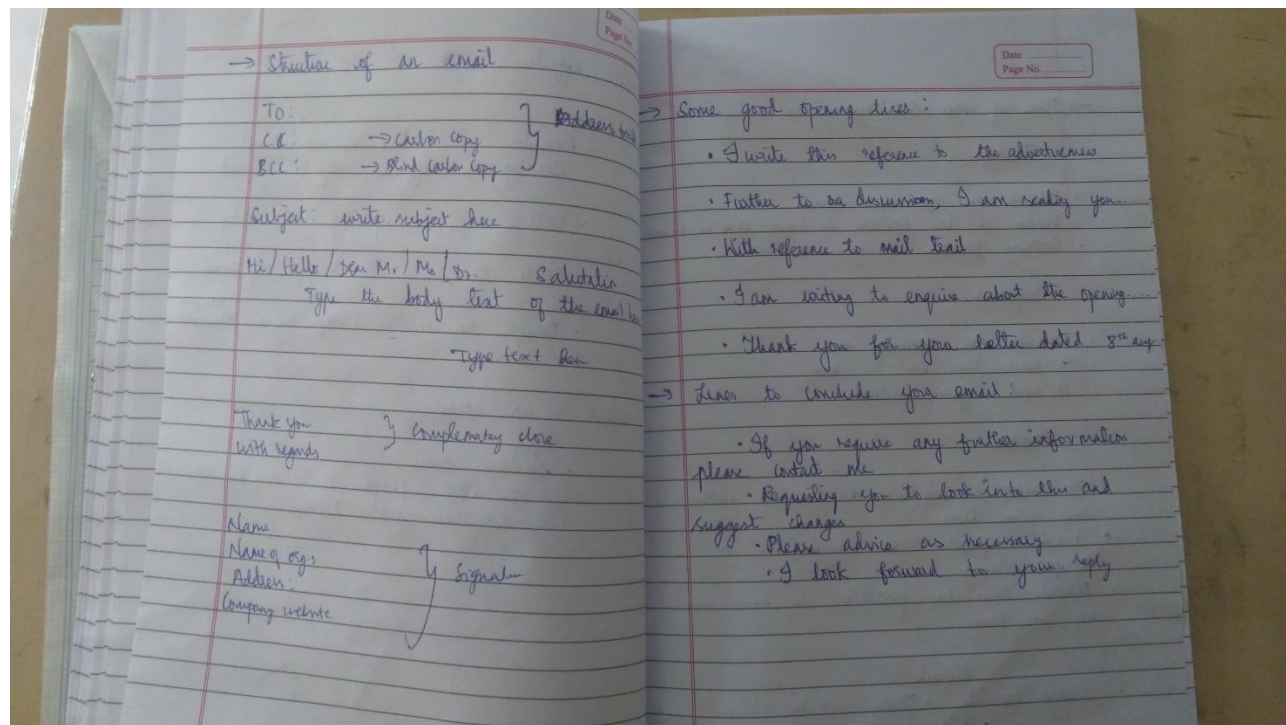 Date
Page No.
→ Structure of an email
TO:
C.C: → Carbon Copy
BCC: → Blind Carbon Copy
Address
Subject: write subject here
Hi / Hello / Dear Mr / Ms / Dr.
Type the body text of the email
Type text here
Thank you
with regards
} Complematary close
Name
Name of orgs
Address:
Company website
Date
Page No.
→ Some good opening lines:
• I write this reference to the
• Further to our discussion, I am sending you
• With reference to mail trail
• I am writing to enquire about the opening....
• Thank you for your letter dated 8th aug
→ Lines to conclude your email:
• If you require any further information
please contact me
• Requesting you to look into this and
suggest changes
• Please advice as necessary
• I look forward to your reply